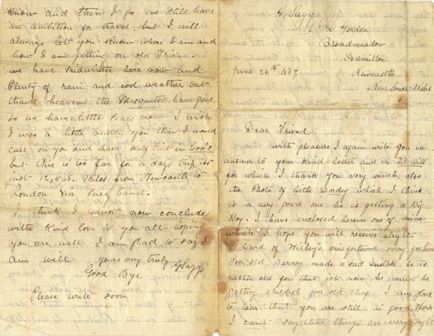 G. Sagg
Gordon
Broadmeadow
Hamilton
June 20th 1887 Newcastle
New South Wales
Dear Friend
with pleasure I again write you in
answer to your kind letter and
for which I thank you very much also
the Photo of little which I think
is a very good one he is getting a Big
Boy. I have enclosed herein one of mine
which I hope you will receive
of misfortune
for old made a sad he is
rather old for that job now he
getting childish poor old chap I am glad
to hear that you are still in good Work
I cant say that things are very bright
know and then I go we still have
an ambition for travel but I will
always let you know where I am and
how I am getting on old Friend
we have Midwinter here now and
Plenty of rain and cool weather but
thank heavens the Mosquitos have gone
so we have a little Peace now I wish
I was a little nearer you then I would
call on you and have
but this is too far for a day trip
just Miles from Newcastle to
London via Suez Canal.
I think I must now conclude
with Kind love to you all hoping
you are well I am glad to say I
am well yours very truly
G Sagg
Good Bye
Please write soon